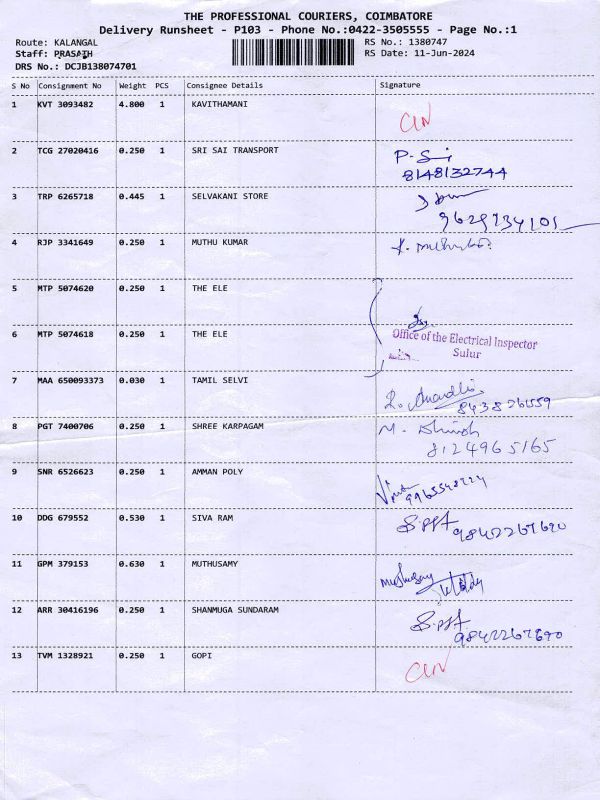 THE PROFESSIONAL COURIERS, COIMBATORE
Delivery Runsheet - P103 - Phone No.:0422-3505555 - Page No.:1
Route: KALANGAL RS No.: 1380747
Staff: PRASATH RS Date: 11-Jun-2024
DRS No.: DCJB138074701
S No Consignment No Weight PCS Consignee Details Signature
1 KVT 3093482 4.800 1 KAVITHAMANI
2 TCG 27020416 0.250 1 SRI SAI TRANSPORT P-Sai
8148132744
3 TRP 6265718 0.445 1 SELVAKANI STORE
9629734101
4 RJP 3341649 0.250 1 MUTHU KUMAR
5 MTP 5074620 0.250 1 THE ELE
6 MTP 5074618 0.250 1 THE ELE Office of the Electrical Inspector
Sulur
7 MAA 650093373 0.030 1 TAMIL SELVI
8 PGT 7400706 0.250 1 SHREE KARPAGAM M.
8124965165
9 SNR 6526623 0.250 1 AMMAN POLY
10 DDG 679552 0.530 1 SIVA RAM
9842267690
11 GPM 379153 0.630 1 MUTHUSAMY
12 ARR 30416196 0.250 1 SHANMUGA SUNDARAM
9842267690
13 TVM 1328921 0.250 1 GOPI